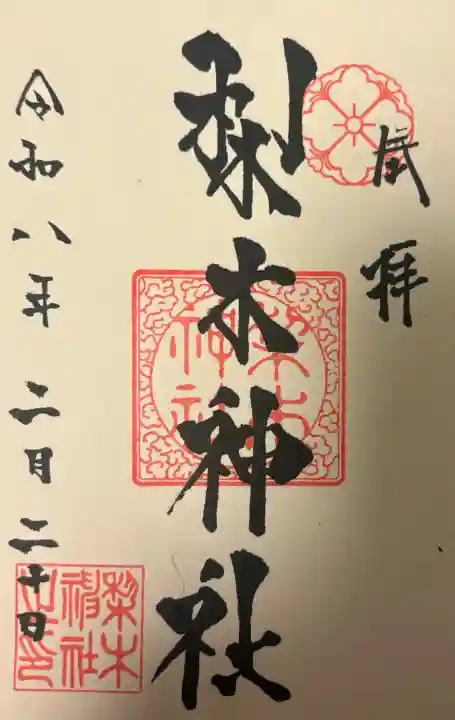 拝
梨木神社
梨木
神社
令和八年 二月二十日
梨木
神社
之印